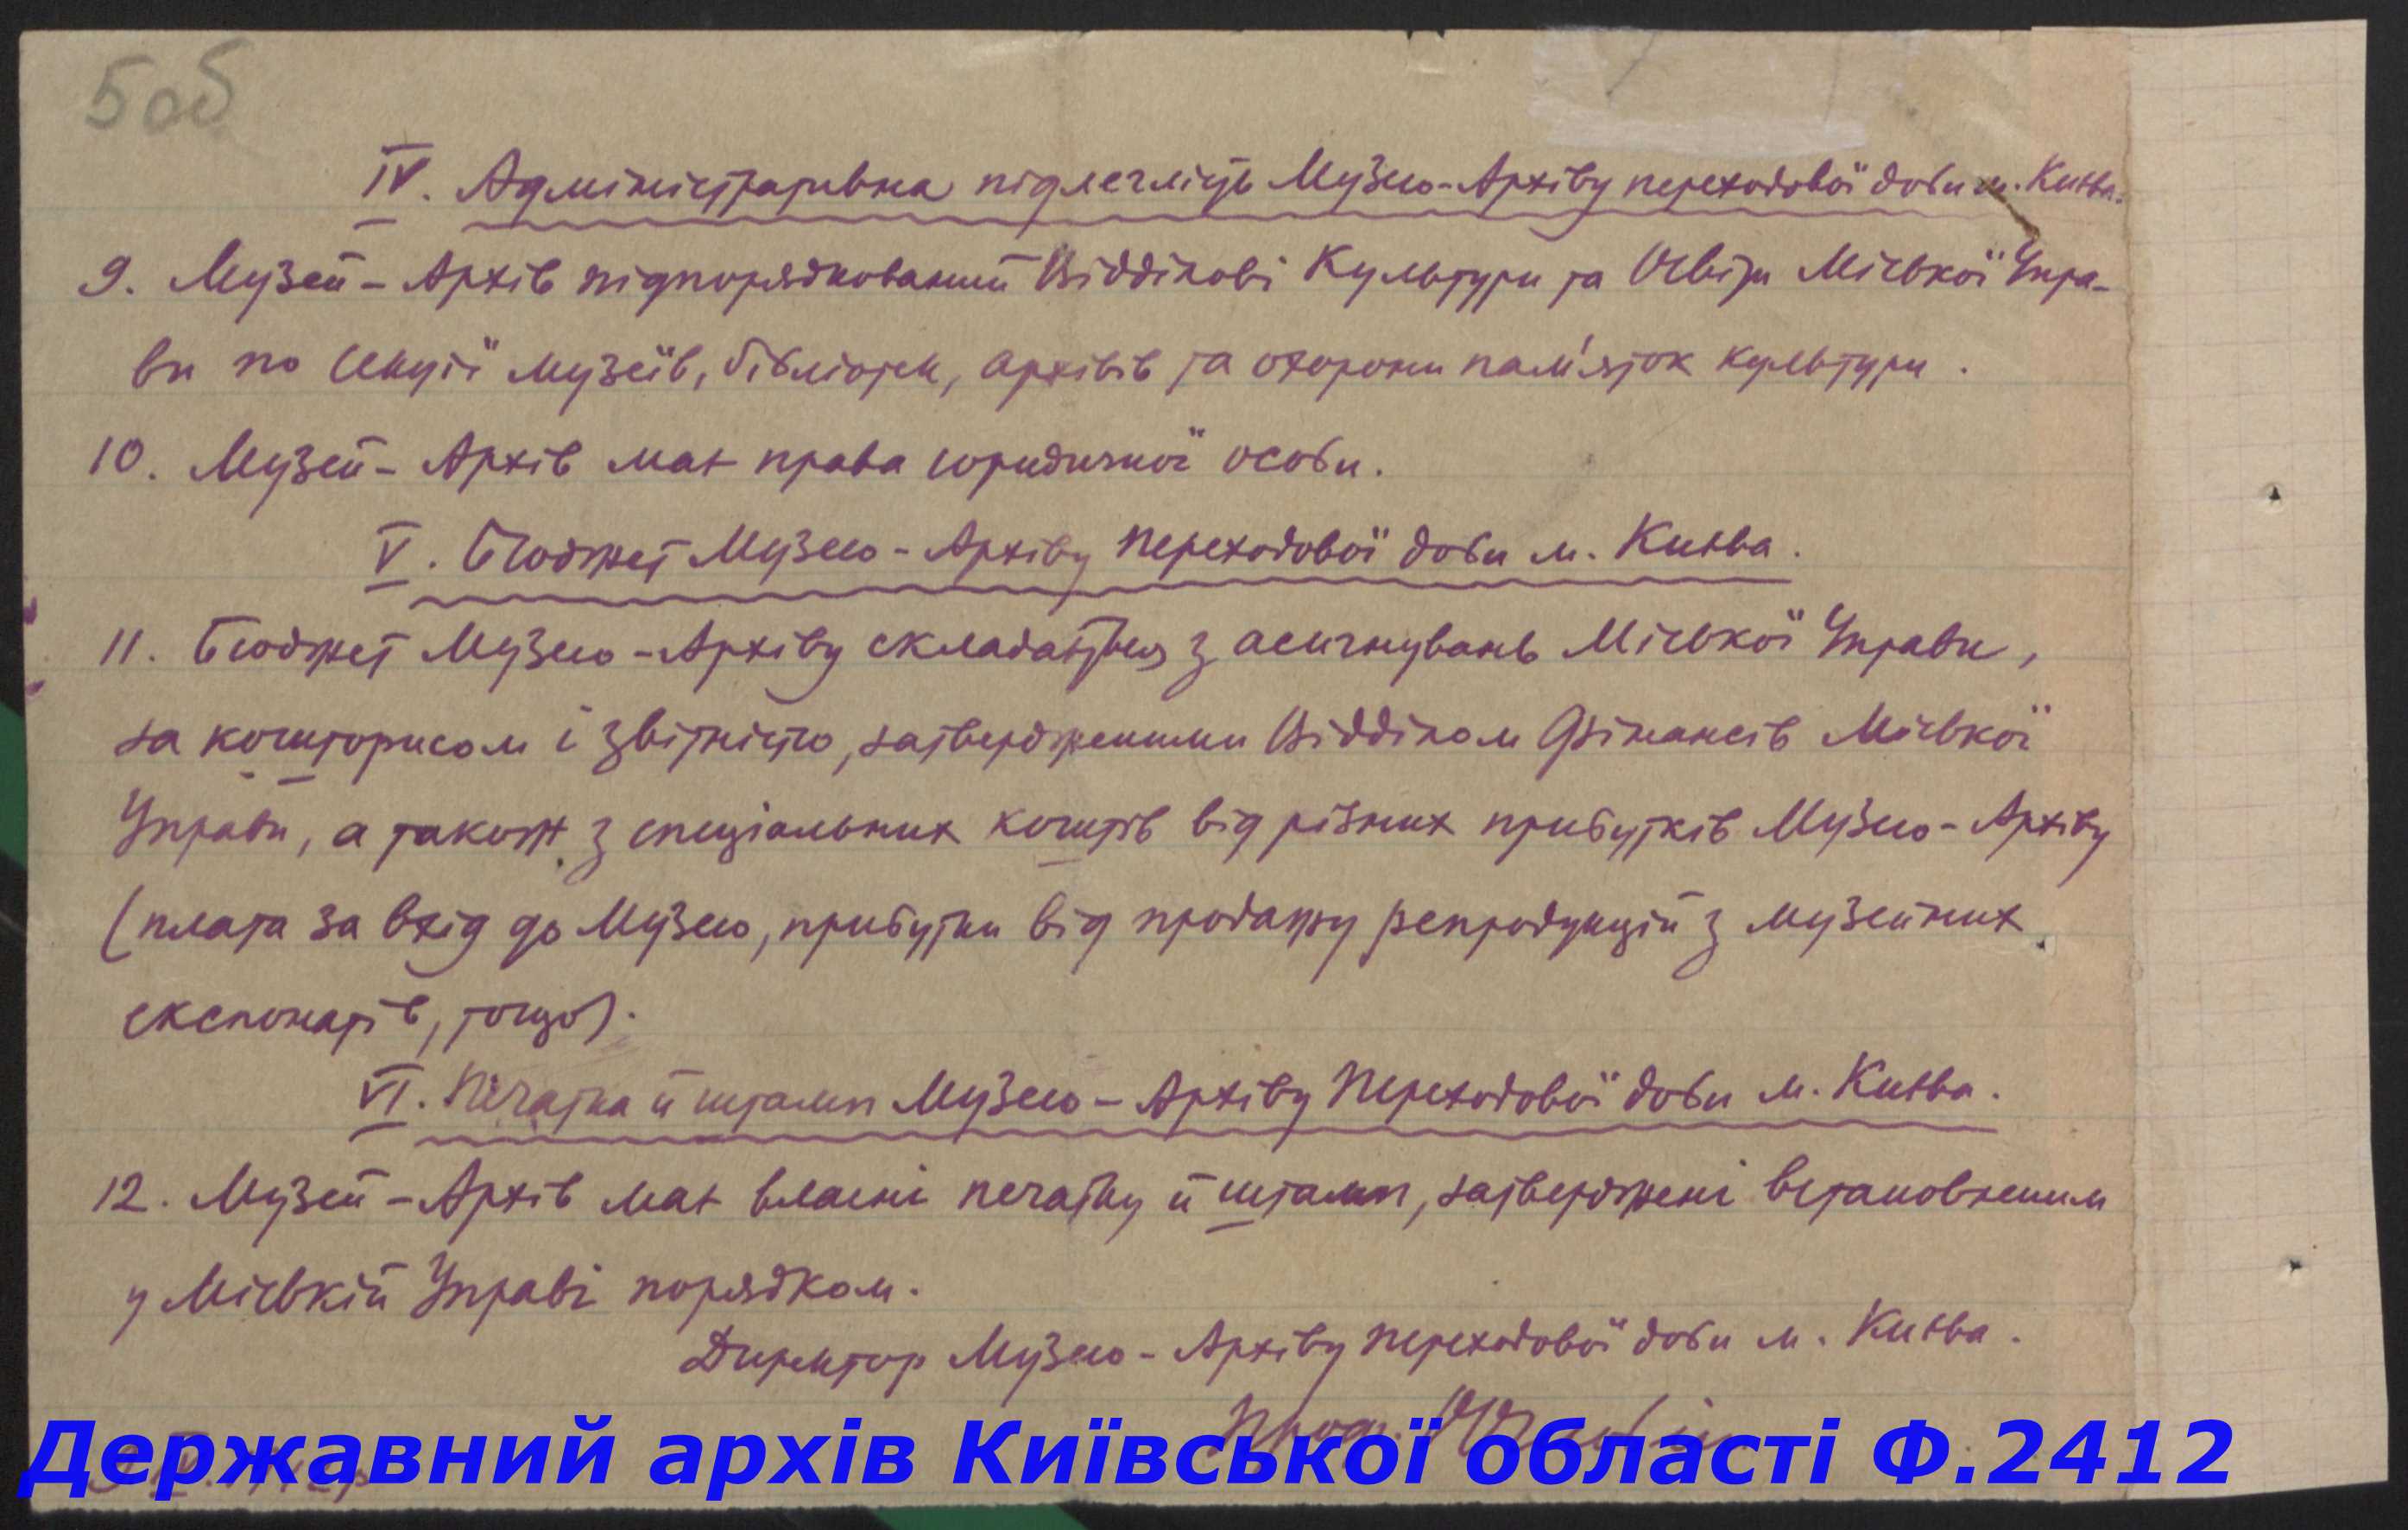 5 об
IV. Адміністративна підлеглість Музею-Архіву переходової доби м. Києва.
9. Музей-Архів підпорядкований Відділові Культури та Освіти Міської Упра-
ви по секції музеїв, бібліотек, архівів та охорони пам'яток культури.
10. Музей-Архів має права юридичної особи.
V. Бюджет Музею-Архіву Переходової доби м. Києва.
11. Бюджет Музею-Архіву складається з асигнувань Міської Управи,
за кошторисом і звітністю, затвердженими Відділом Фінансів Міської
Управи, а також з спеціальних коштів від різних прибутків Музею-Архіву
(плата за вхід до Музею, прибутки від продажу репродукцій з музейних
експонатів, тощо).
VI. Печатка й штамп Музею-Архіву Переходової доби м. Києва.
12. Музей-Архів має власні печатку й штамп, затверджені встановленим
у Міській Управі порядком.
Директор Музею-Архіву Переходової доби м. Києва.
Проф.
Державний архів Київської області Ф.2412